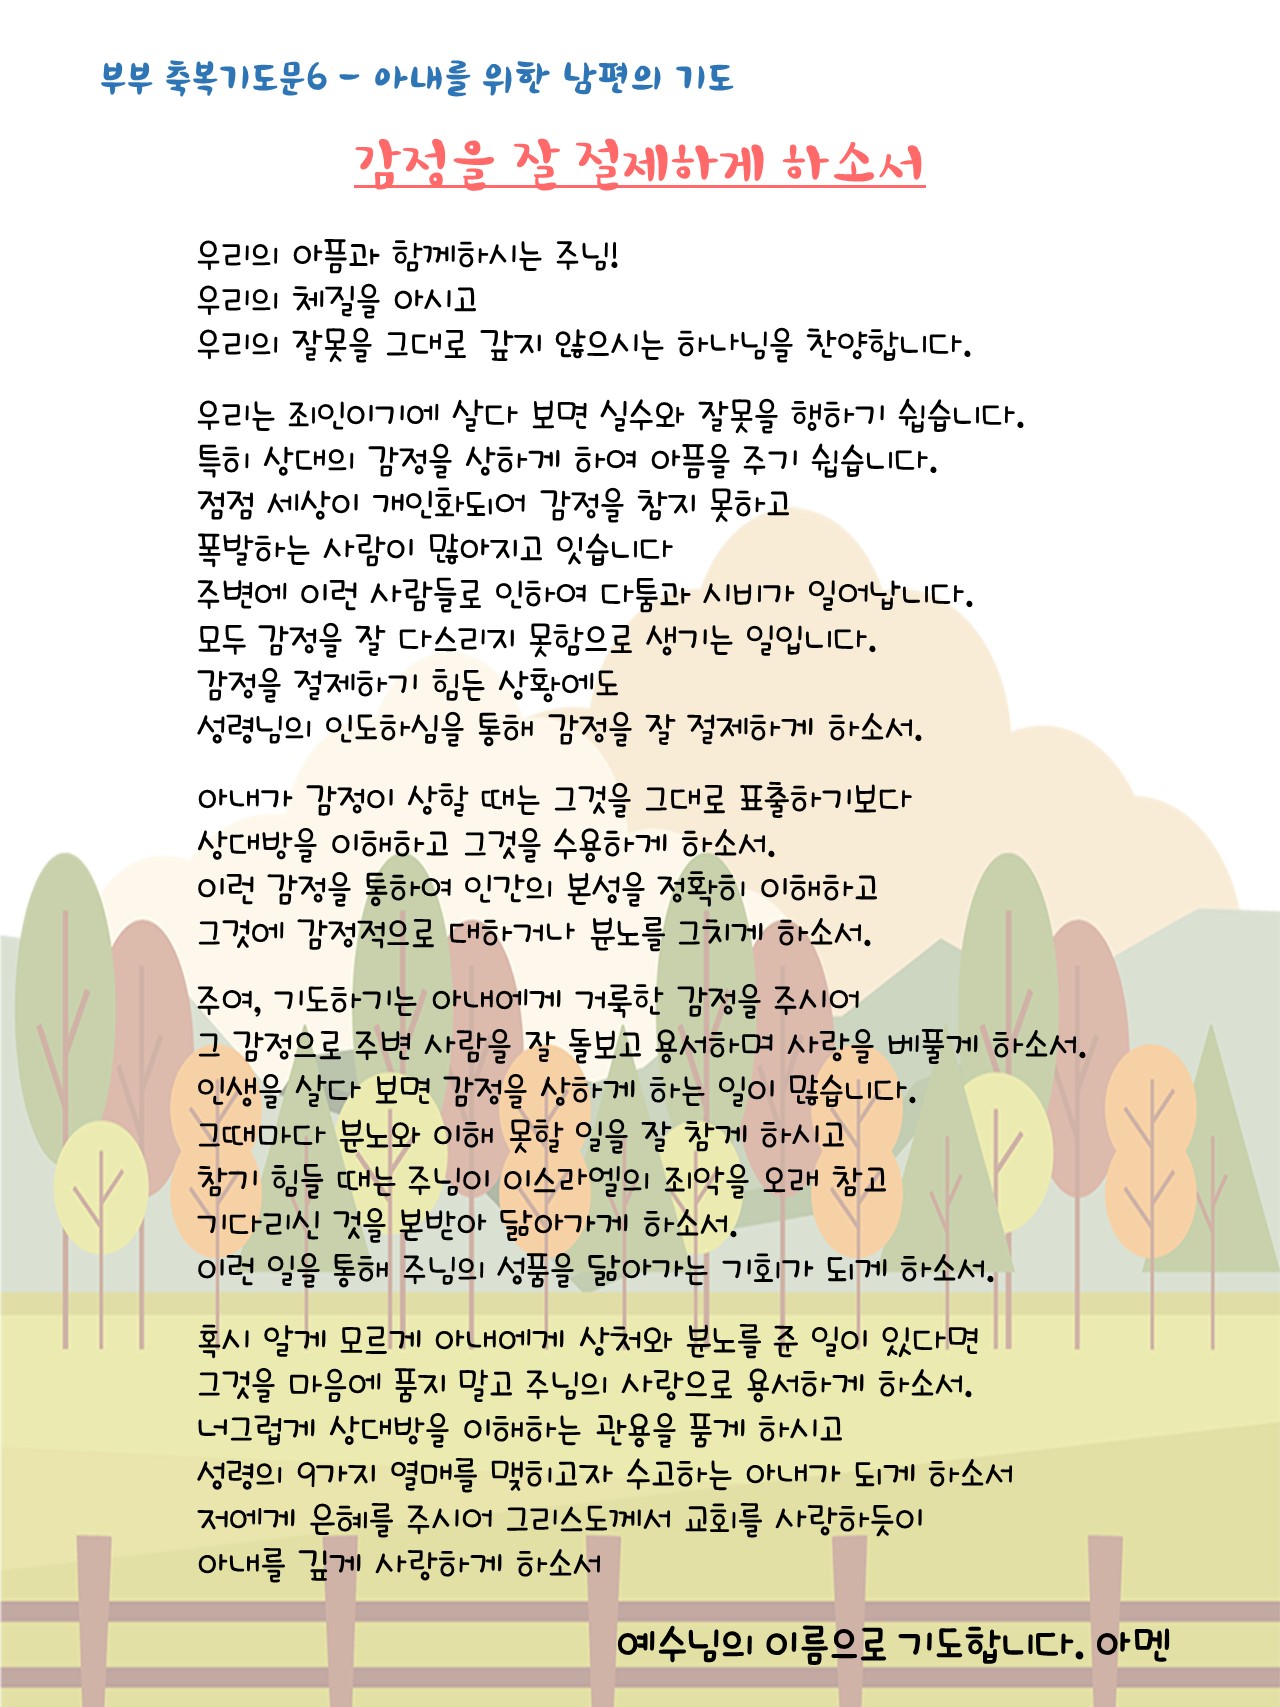 부부 축복기도문6 - 아내를 위한 남편의 기도
감정을 잘 절제하게 하소서
우리의 아픔과 함께하시는 주님!
우리의 체질을 아시고
우리의 잘못을 그대로 갚지 않으시는 하나님을 찬양합니다.
우리는 죄인이기에 살다 보면 실수와 잘못을 행하기 쉽습니다.
특히 상대의 감정을 상하게 하여 아픔을 주기 쉽습니다.
점점 세상이 개인화되어 감정을 참지 못하고
폭발하는 사람이 많아지고 잇습니다
주변에 이런 사람들로 인하여 다툼과 시비가 일어납니다.
모두 감정을 잘 다스리지 못함으로 생기는 일입니다.
감정을 절제하기 힘든 상황에도
성령님의 인도하심을 통해 감정을 잘 절제하게 하소서.
아내가 감정이 상할 때는 그것을 그대로 표출하기보다
상대방을 이해하고 그것을 수용하게 하소서.
이런 감정을 통하여 인간의 본성을 정확히 이해하고
그것에 감정적으로 대하거나 분노를 그치게 하소서.
주여, 기도하기는 아내에게 거룩한 감정을 주시어
그 감정으로 주변 사람을 잘 돌보고 용서하며 사랑을 베풀게 하소서.
인생을 살다 보면 감정을 상하게 하는 일이 많습니다.
그때마다 분노와 이해 못할 일을 잘 참게 하시고
참기 힘들 때는 주님이 이스라엘의 죄악을 오래 참고
기다리신 것을 본받아 닮아가게 하소서.
이런 일을 통해 주님의 성품을 닮아가는 기회가 되게 하소서.
혹시 알게 모르게 아내에게 상처와 분노를 준 일이 있다면
그것을 마음에 품지 말고 주님의 사랑으로 용서하게 하소서.
너그럽게 상대방을 이해하는 관용을 품게 하시고
성령의 9가지 열매를 맺히고자 수고하는 아내가 되게 하소서
저에게 은혜를 주시어 그리스도께서 교회를 사랑하듯이
아내를 깊게 사랑하게 하소서
예수님의 이름으로 기도합니다. 아멘